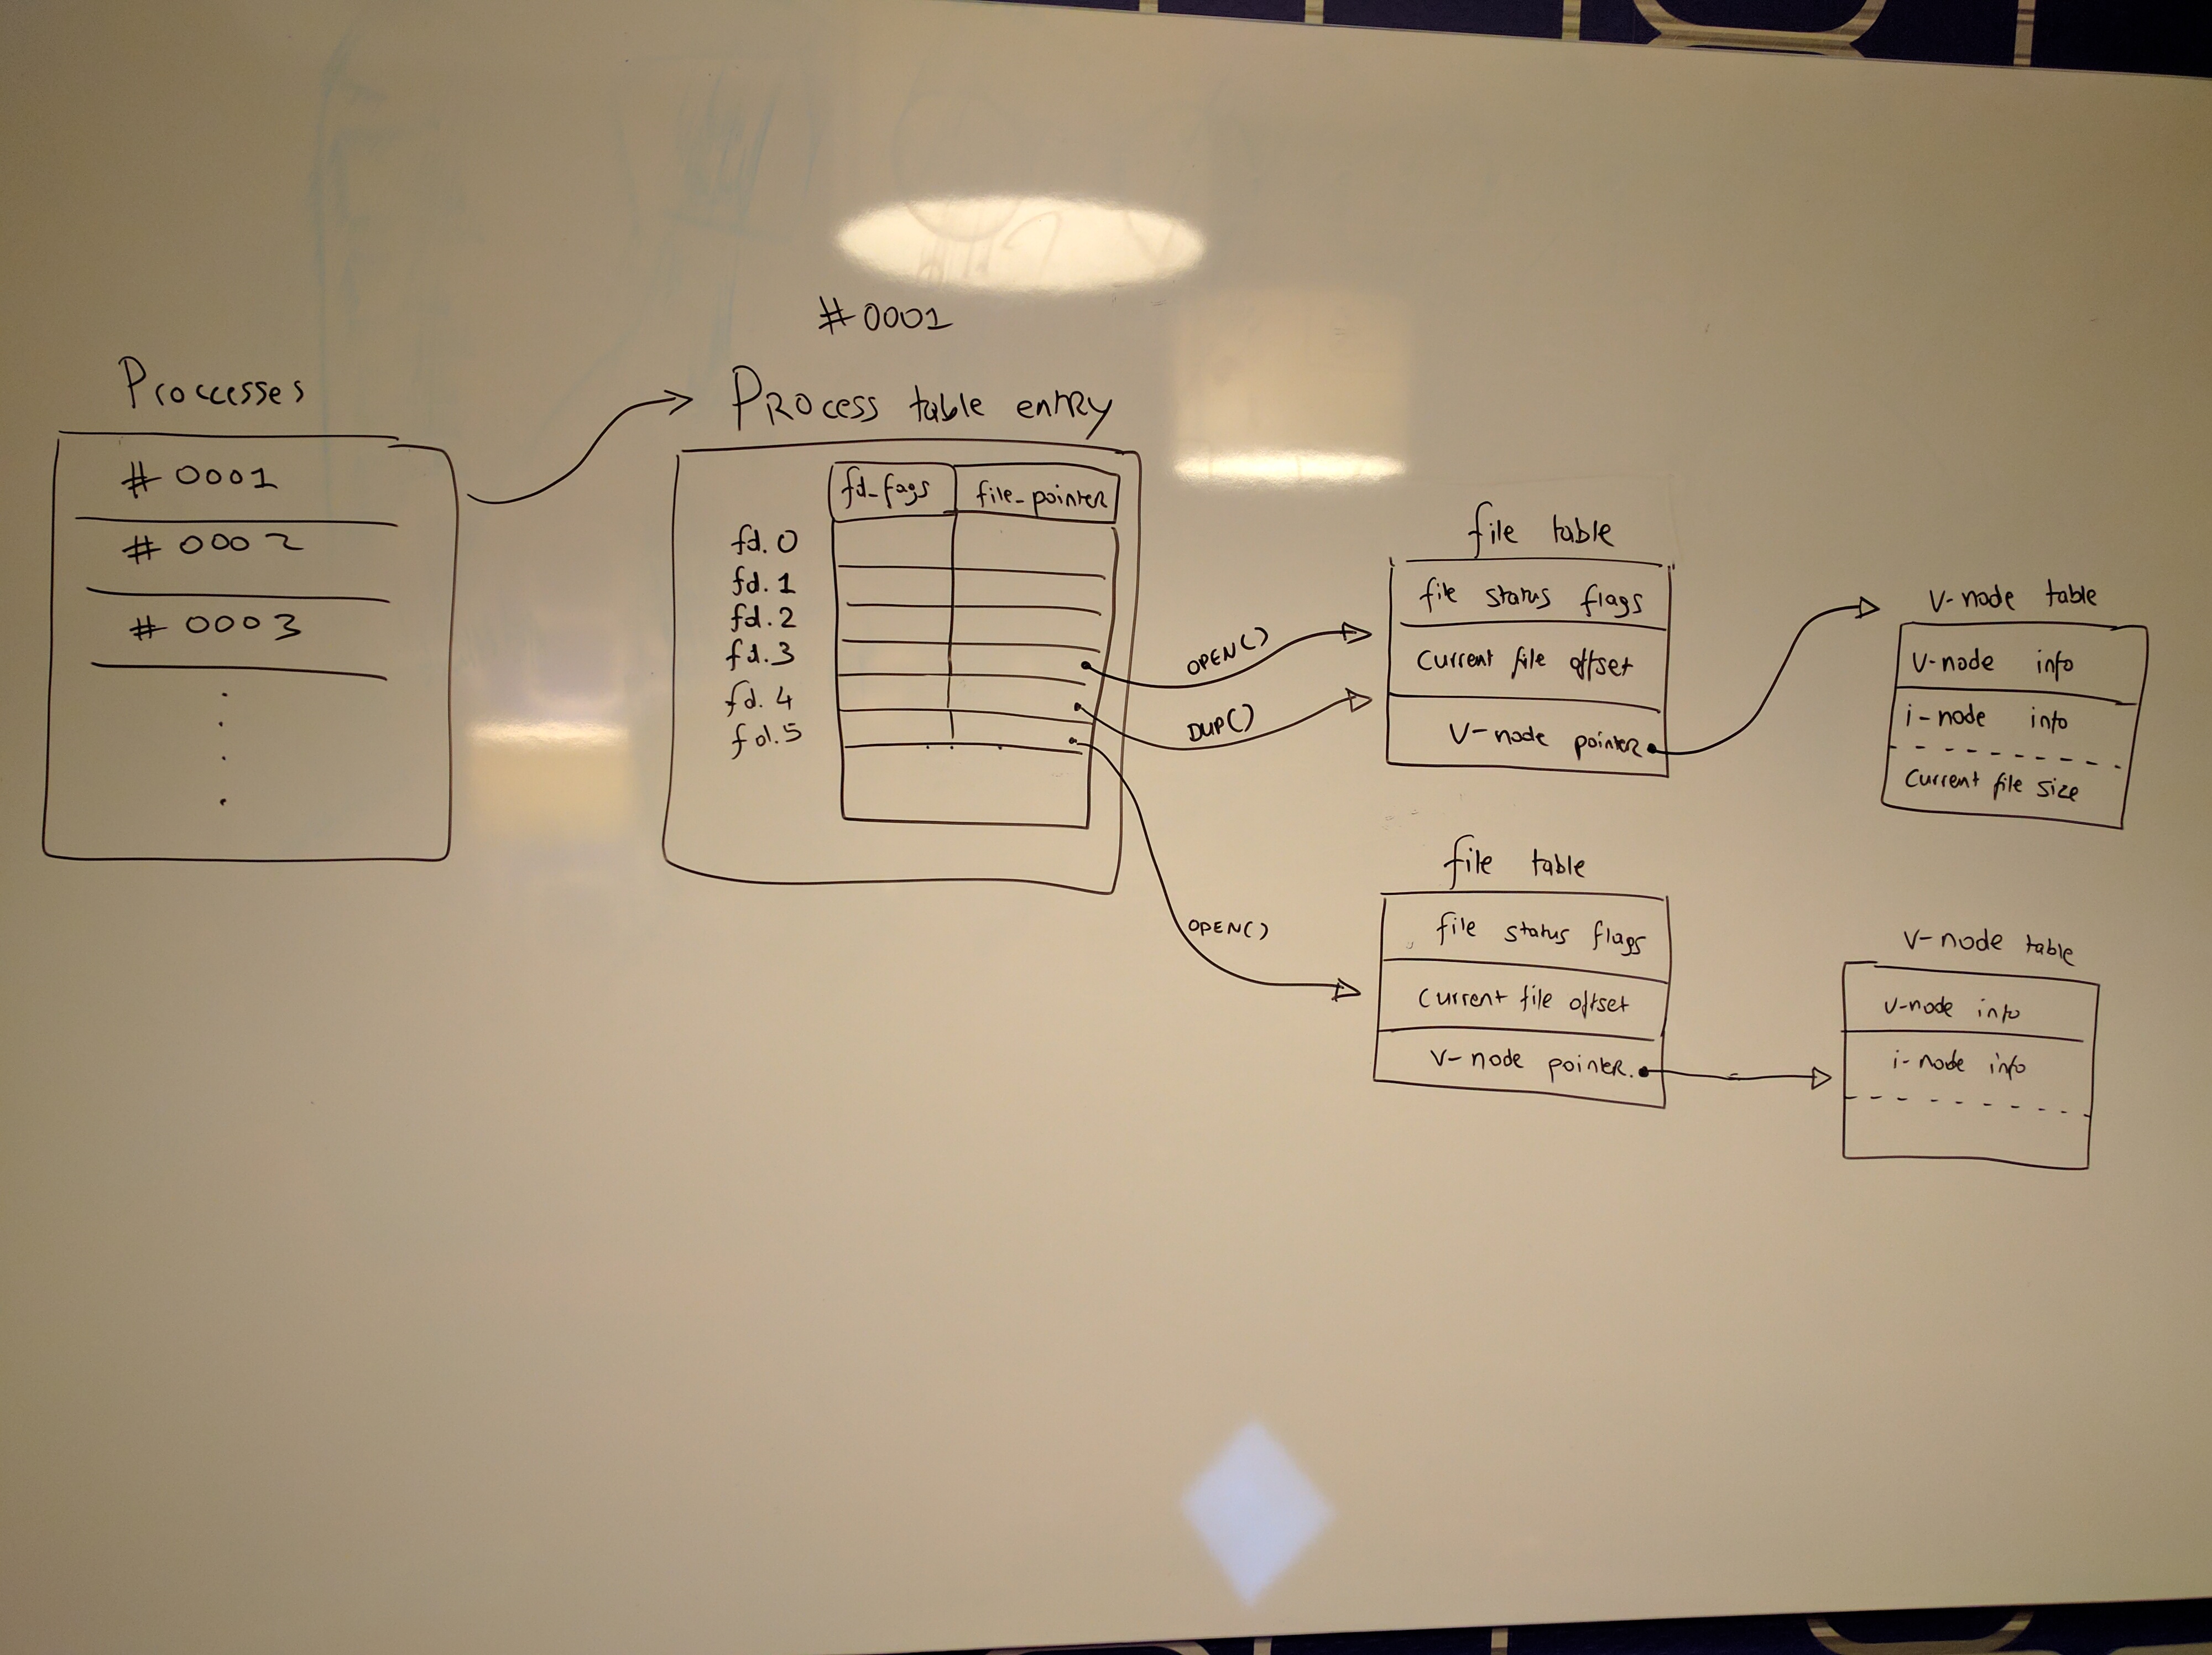 #0001
Proccesses
#0001
#0002
#0003
Process table entry
fd_fags file_pointer
fd.0
fd.1
fd.2
fd.3
fd.4
fd.5
OPEN()
DUP()
OPEN()
file table
file status flags
Current file offset
V-node pointer
V-node table
V-node info
i-node info
Current file size
file table
file status flags
Current file offset
V-node pointer.
V-node table
V-node info
i-node info